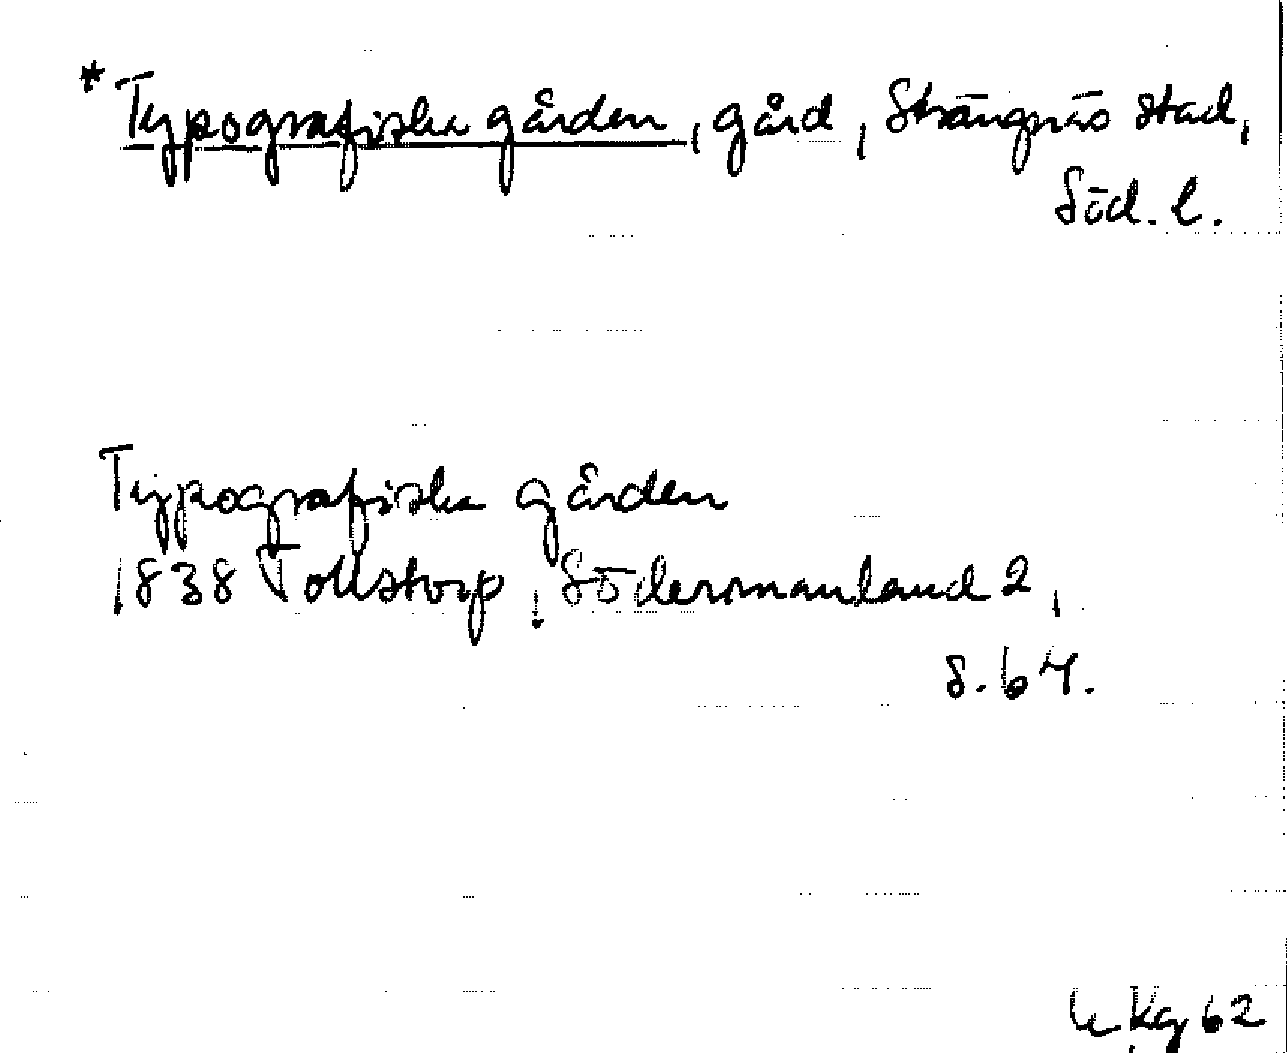 * Typografiska gården, gård, Strängnäs stad,
Söd. l.
Typografiska gården
1838 Tollstorp, Södermanland 2,
s. 64.
Kg 62